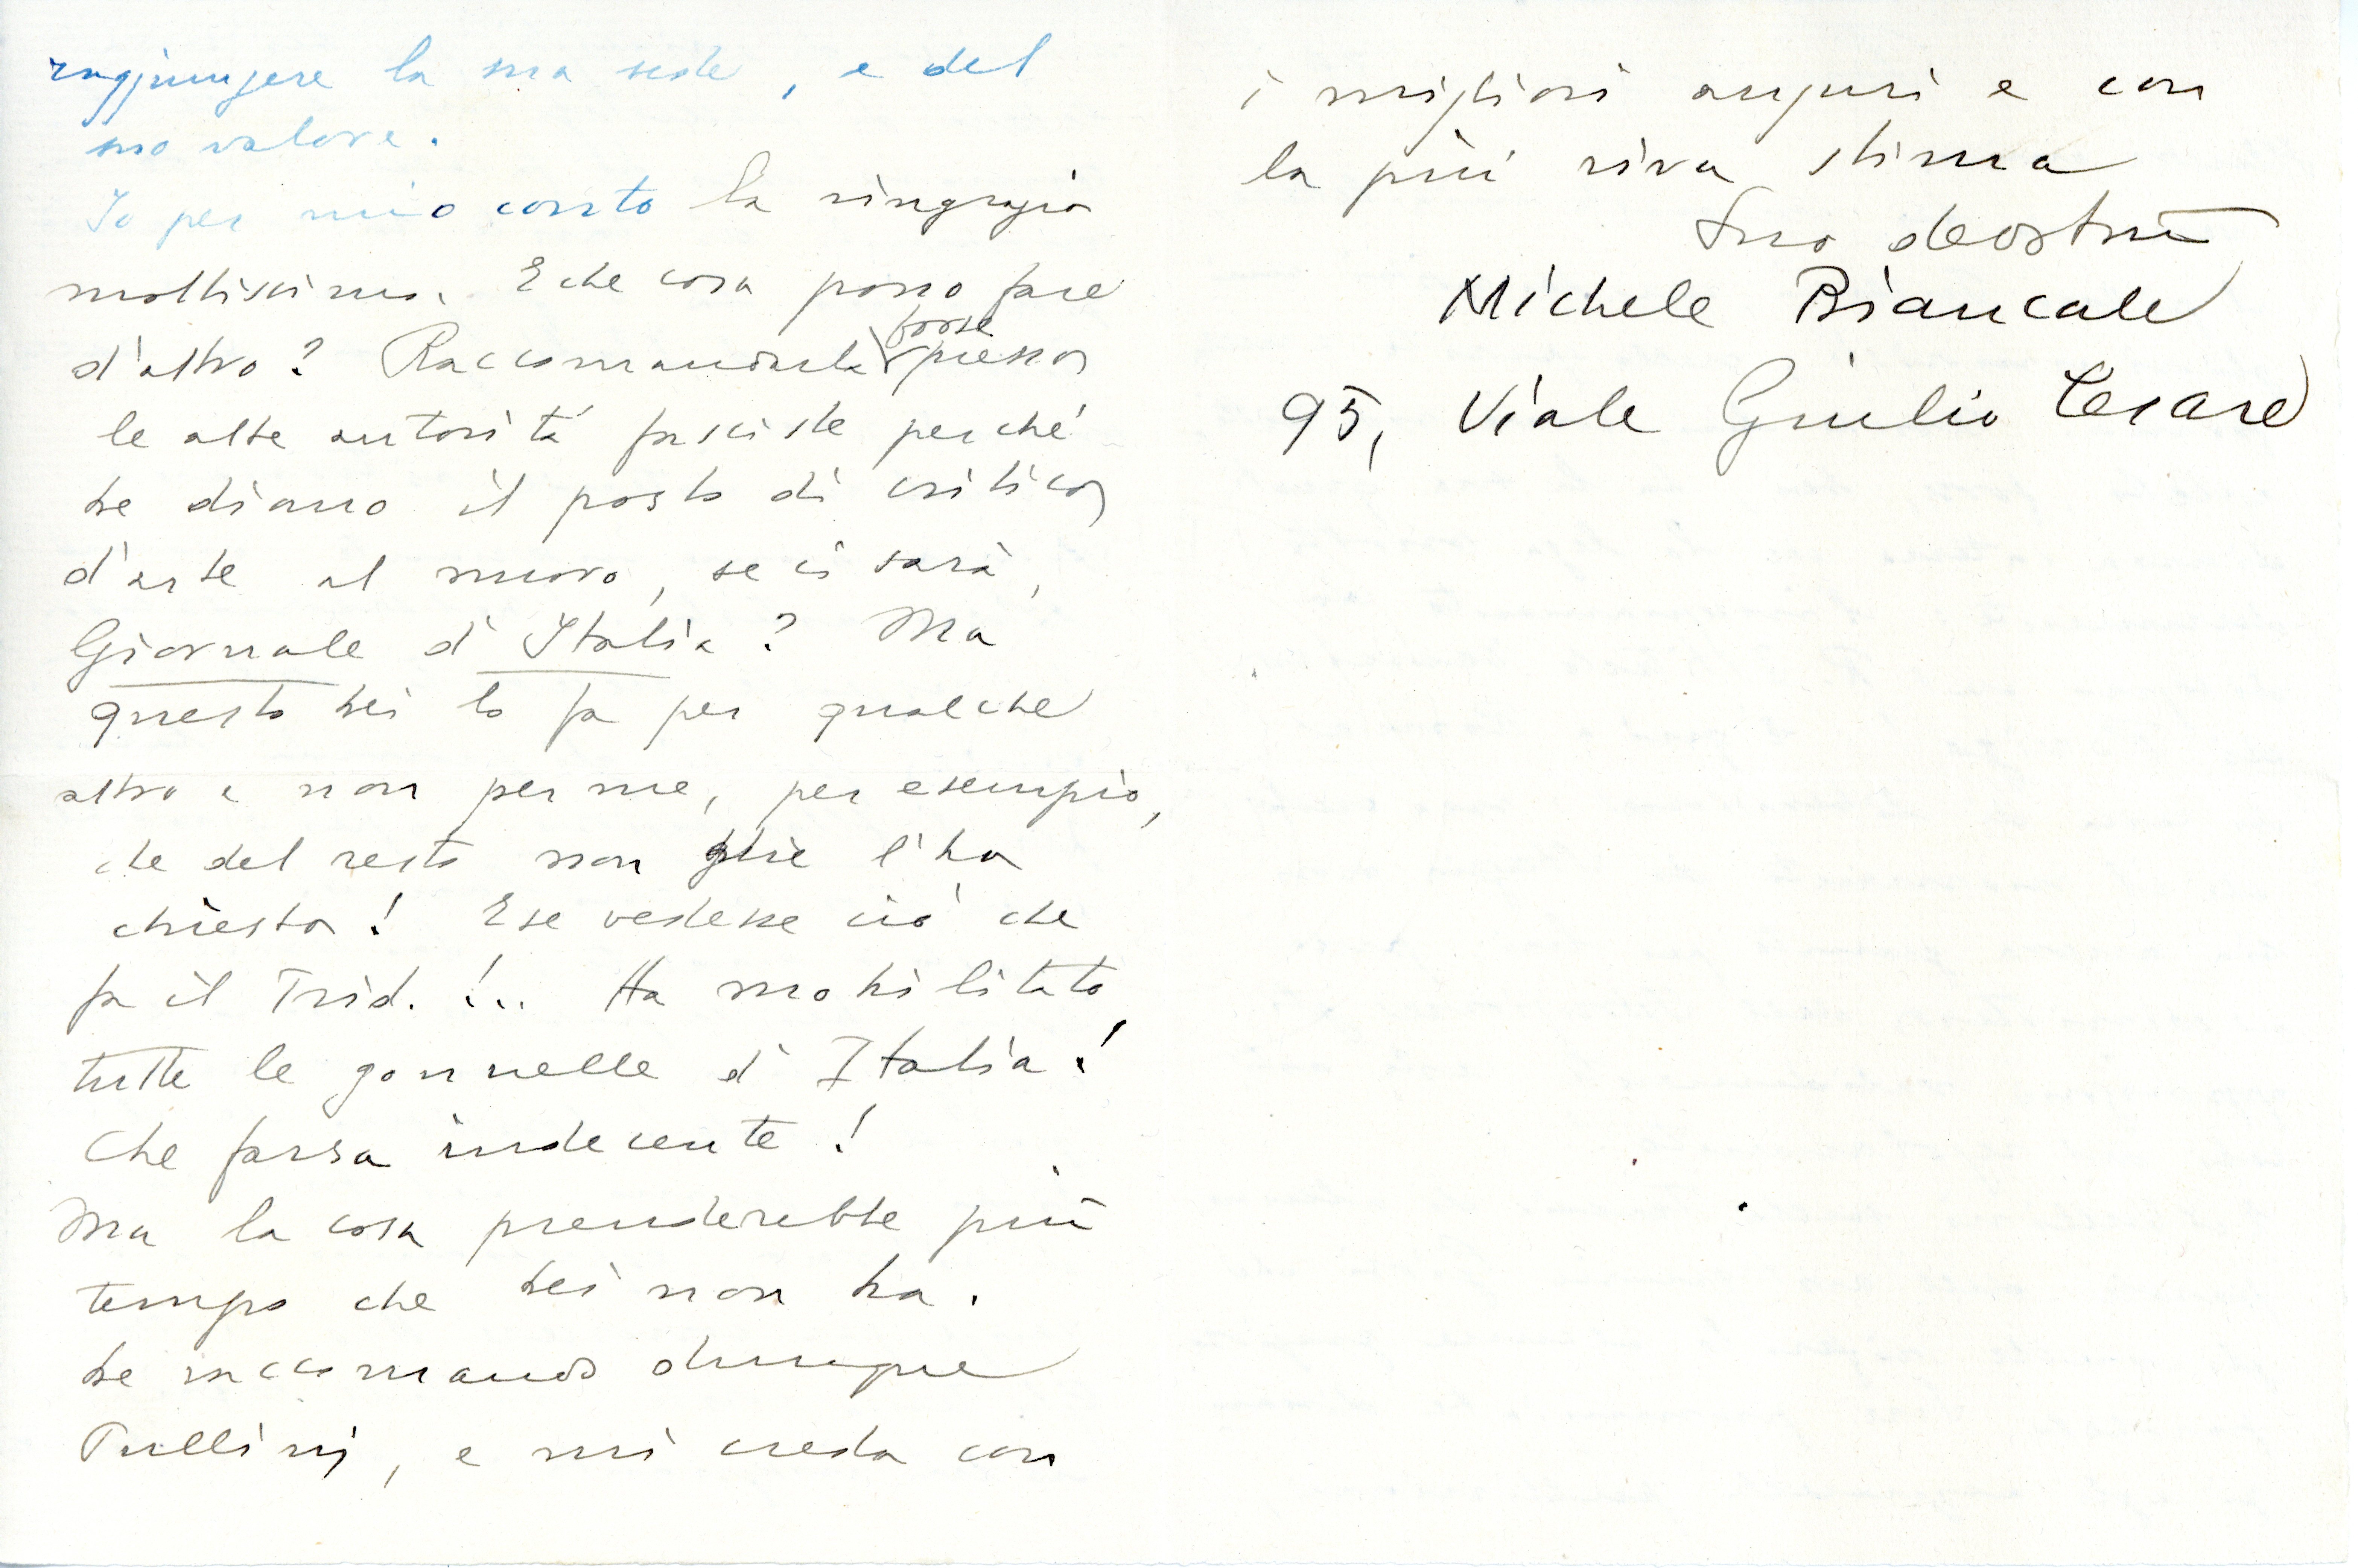 raggiungere la sua sede, e del
suo valore.
Io per mio conto la ringrazio
moltissimo. E che cosa posso fare
d'altro? Raccomandarla forse presso
le alte autorità fasciste perché
Le diano il posto di critico
d'arte al nuovo, se ci sarà,
Giornale d'Italia? Ma
questo Lei lo fa per qualche
altro e non per me, per esempio,
che del resto non glie l'ho
chiesto! E se vedesse ciò che
fa il Trid. !.. Ha mobilitato
tutte le gonnelle d'Italia!
Che farsa indecente!
Ma la cosa prenderebbe più
tempo che Lei non ha.
Le raccomando dunque
Pullini, e mi creda con
i migliori auguri e con
la più viva stima
Suo
Michele Biancale
95, Viale Giulio Cesare